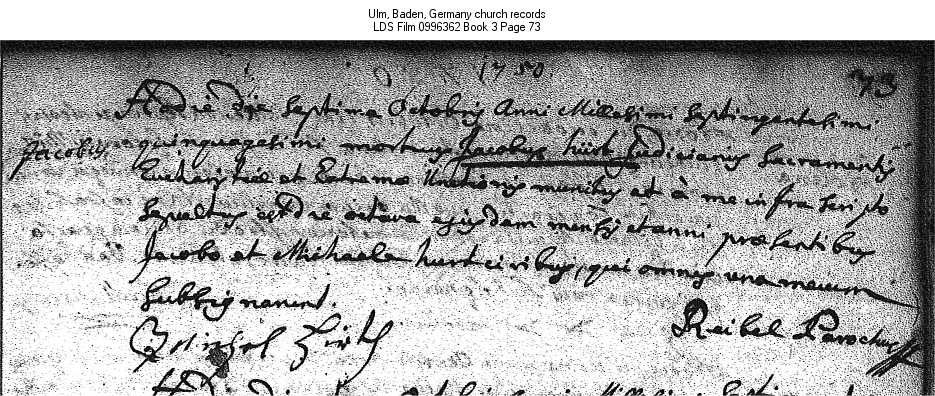 Ulm, Baden, Germany church records
LDS Film 0996362 Book 3 Page 73
1750.
73
Hodie Die Septima Octobris Anni Millesimi Septingentesimi
Jacobus quinquagesimi mortuus Jacobus hürt Judiciarius Sacramentis
Eucharistiæ et Extremæ Unctionis munitus est à me infra scripto
Sepultus est Die octava ejusdem mensis et anni præsentibus
Jacobo et Michaele hurt civibus, qui omnes una mecum
subsignarunt.
Michel Hirth
Reibel Parochus